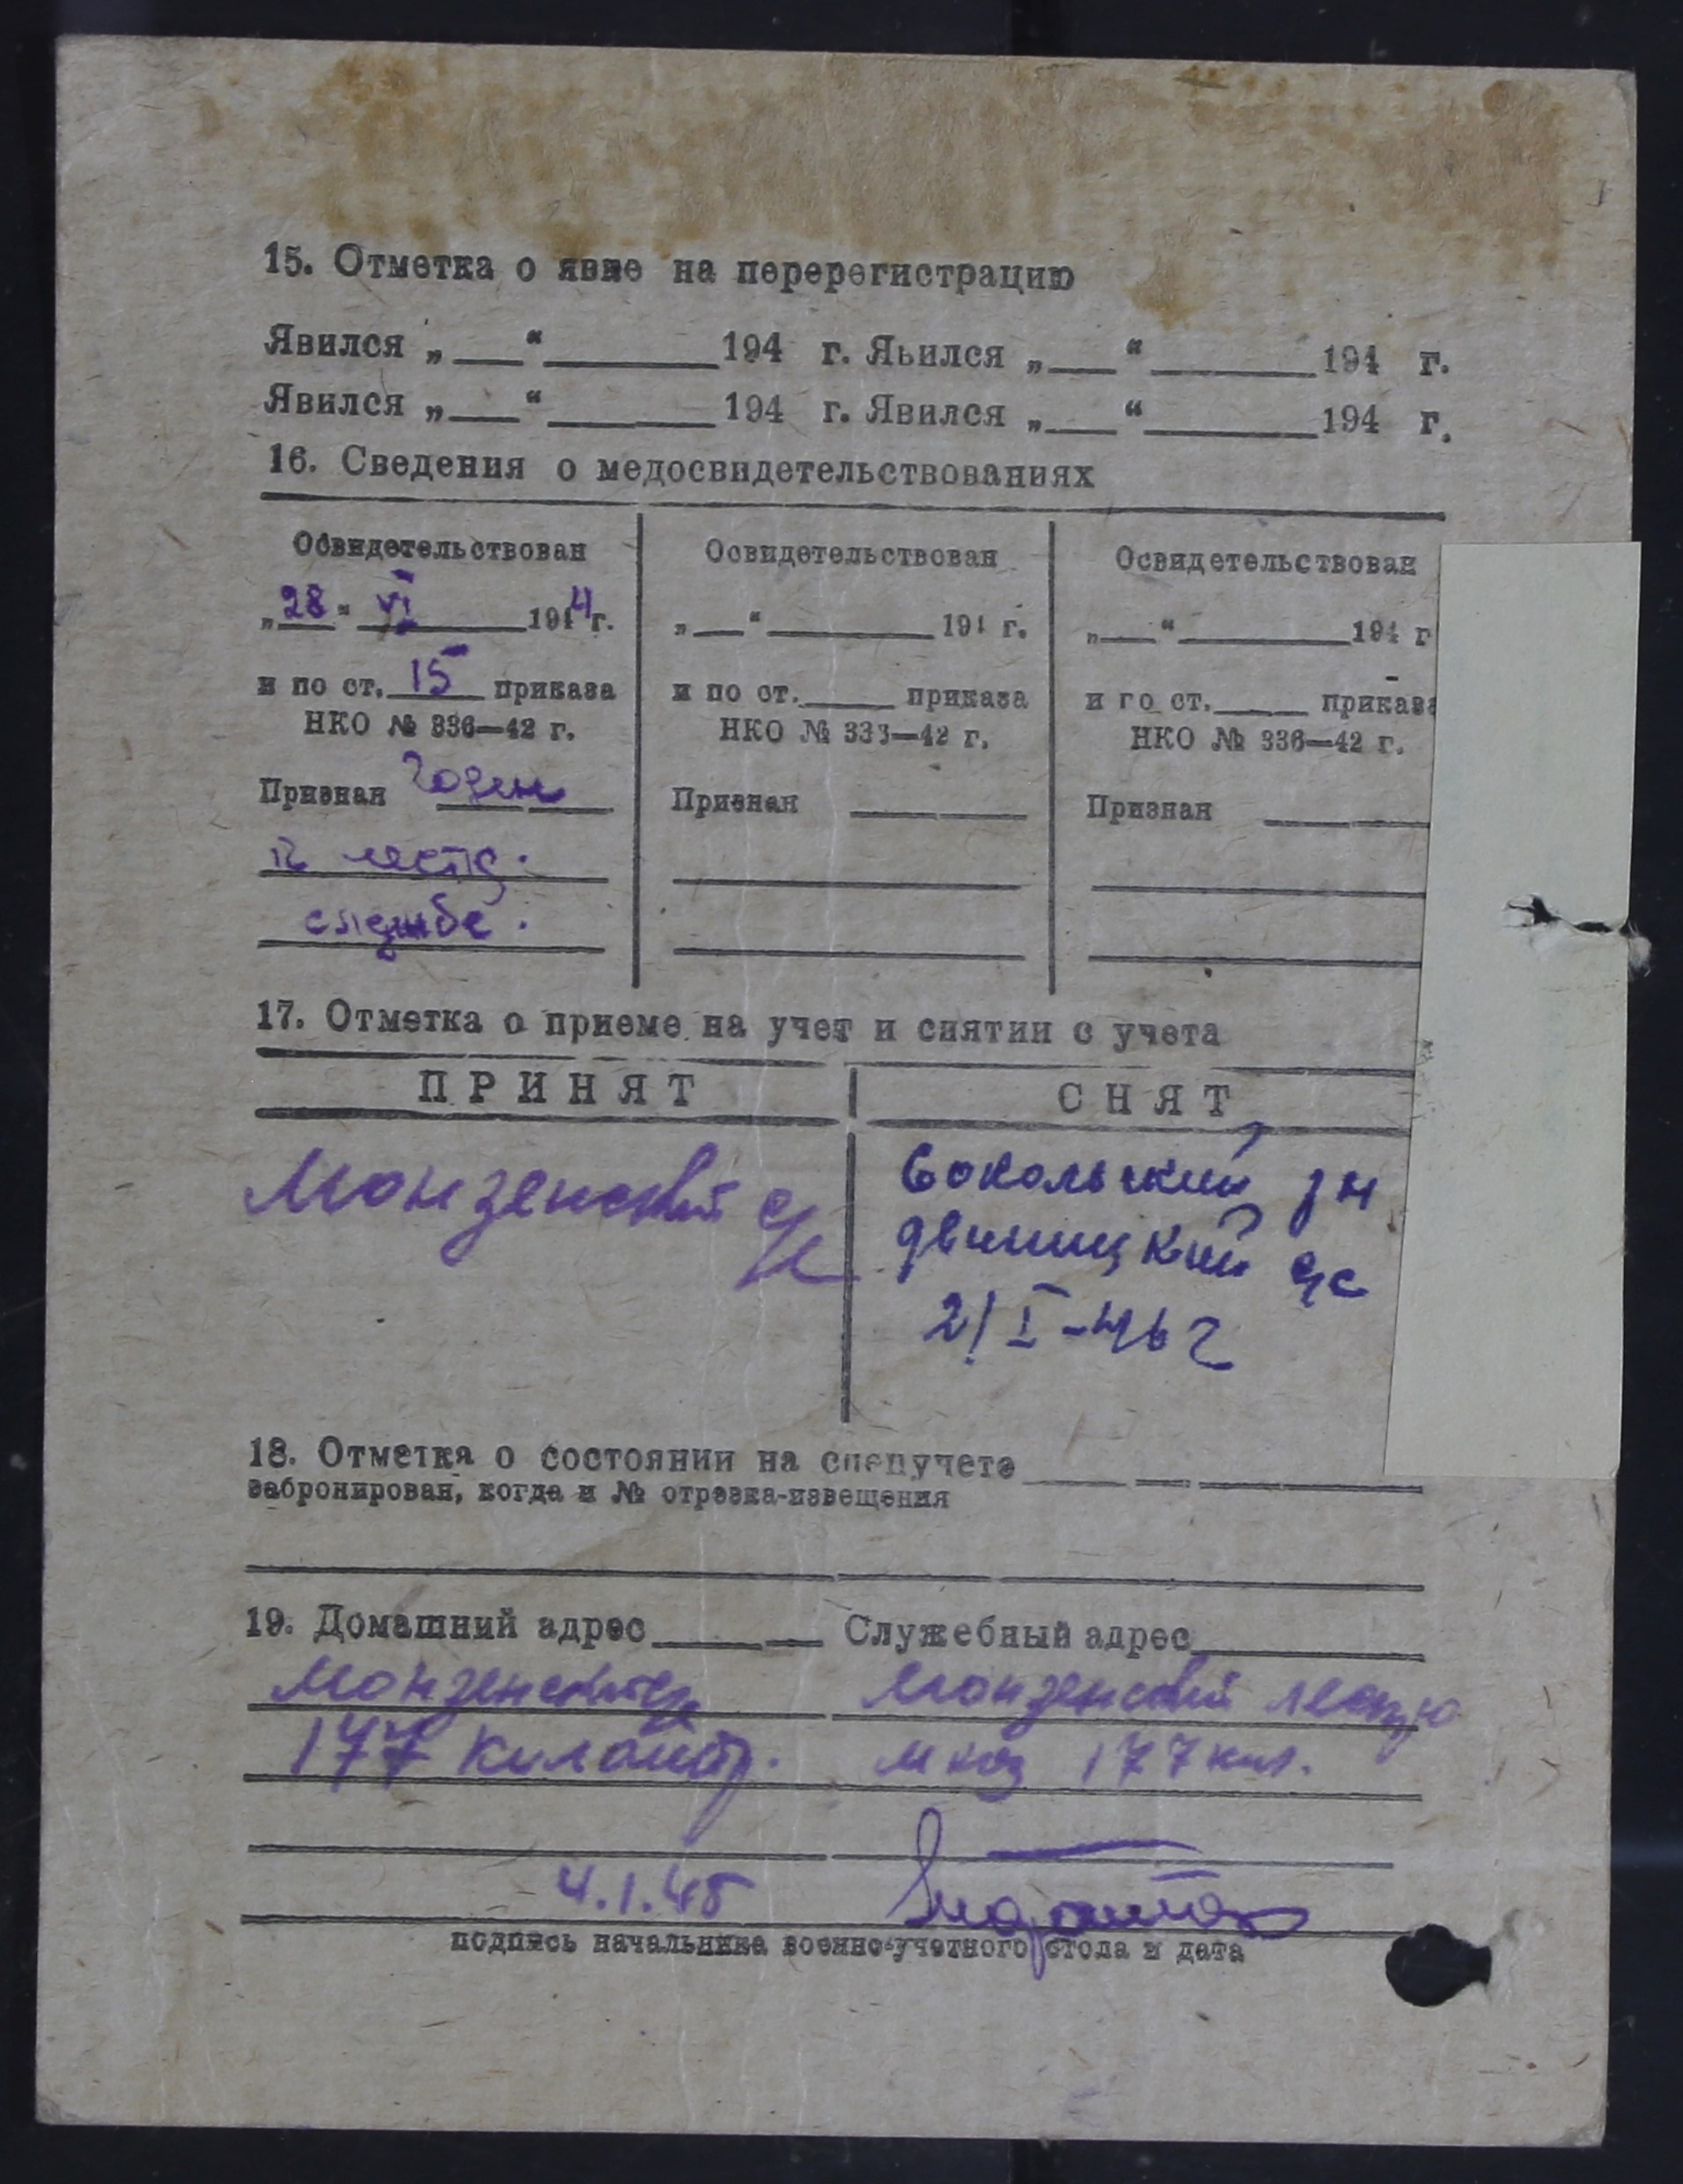 15. Отметка о явке на перерегистрацию
Явился „___“ ______ 194 г. Яьился „___“ ______ 194 г.
Явился „___“ ______ 194 г. Явился „___“ ______ 194 г.
16. Сведения о медосвидетельствованиях
Освидетельствован
„28“ VI 1944 г.
и по ст. 15 приказа
НКО № 336—42 г.
Признан годен
к
службе.
Освидетельствован
„___“ ______ 194 г.
и по ст. ____ приказа
НКО № 333—42 г.
Признан
Освидетельствован
„___“ ______ 194 г
и го ст. ____ приказа
НКО № 336—42 г.
Признан
17. Отметка о приеме на учет и снятии с учета
ПРИНЯТ
СНЯТ
Монзенский с/с
Сокольский рн
Двиницкий с/с
2/I-46 г
18. Отметка о состоянии на спецучете
забронирован, когда и № отрезка-извещения
19. Домашний адрес
Служебный адрес
Монзенский
177
Монзенский
177 кил.
4.1.45
подпись начальника военно-учетного стола и дата